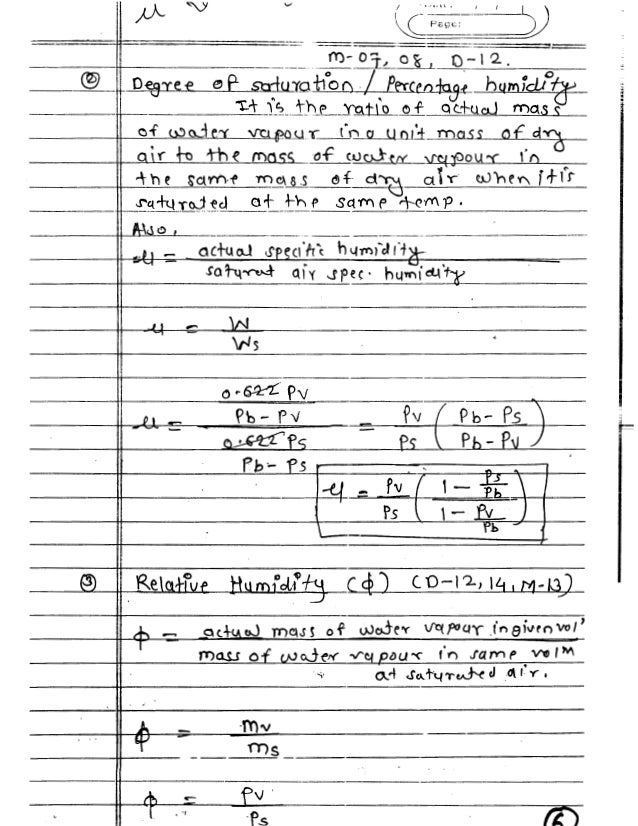 μ
Page:
M-07, 08, D-12.
② Degree of saturation / Percentage humidity
It is the ratio of actual mass
of water vapour in a unit mass of dry
air to the mass of water vapour in
the same mass of dry air when it is
saturated at the same temp.
Also,
μ = actual specific humidity / saturat air spec. humidity
μ = W / Ws
μ = (0.622 Pv / Pb - Pv) / (0.622 Ps / Pb - Ps) = Pv / Ps (Pb - Ps / Pb - Pv)
μ = Pv / Ps ((1 - Ps / Pb) / (1 - Pv / Pb))
③ Relative Humidity (ϕ) (D-12, 14, M-13)
ϕ = actual mass of water vapour in given vol'
mass of water vapour in same volm
at saturated air.
ϕ = mv / ms
ϕ = Pv / Ps
6